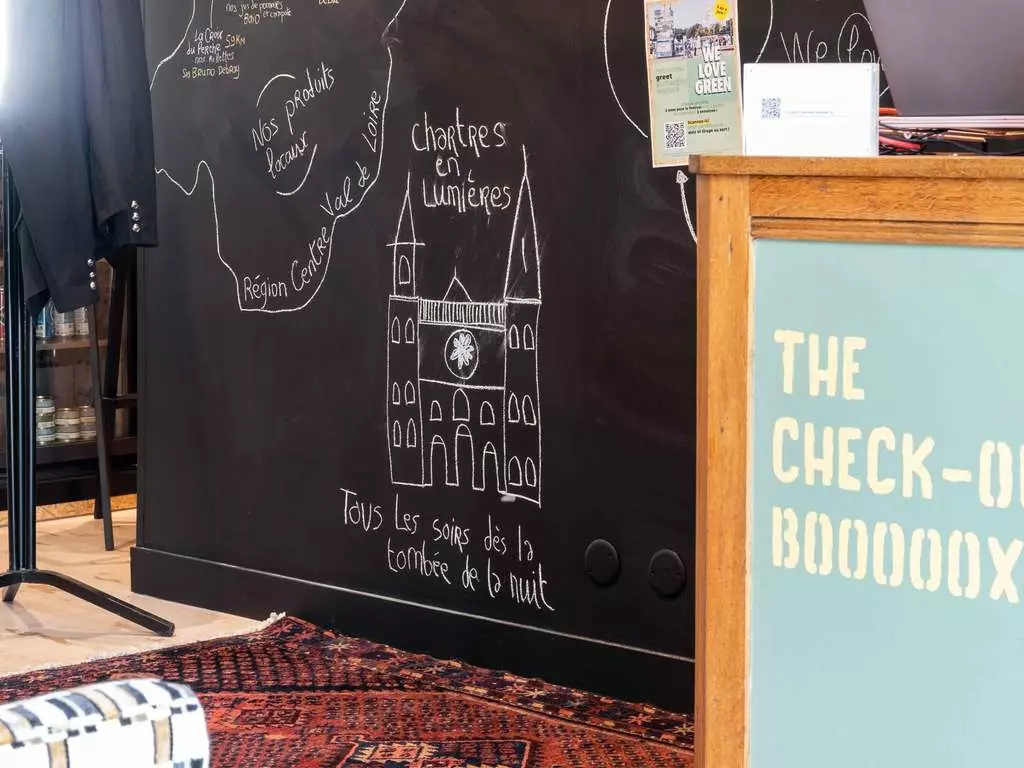 nos jus de pommes
BONO et compote
La Croix
du Perche 59KM
Bruno Debray
Nos produits
locaux
Région Centre Val de Loire
Chartres
en
Lumières
Tous les soirs dès la
tombée de la nuit
We
greet
WE
LOVE
GREEN
THE
CHECK-O
BOOOOOX